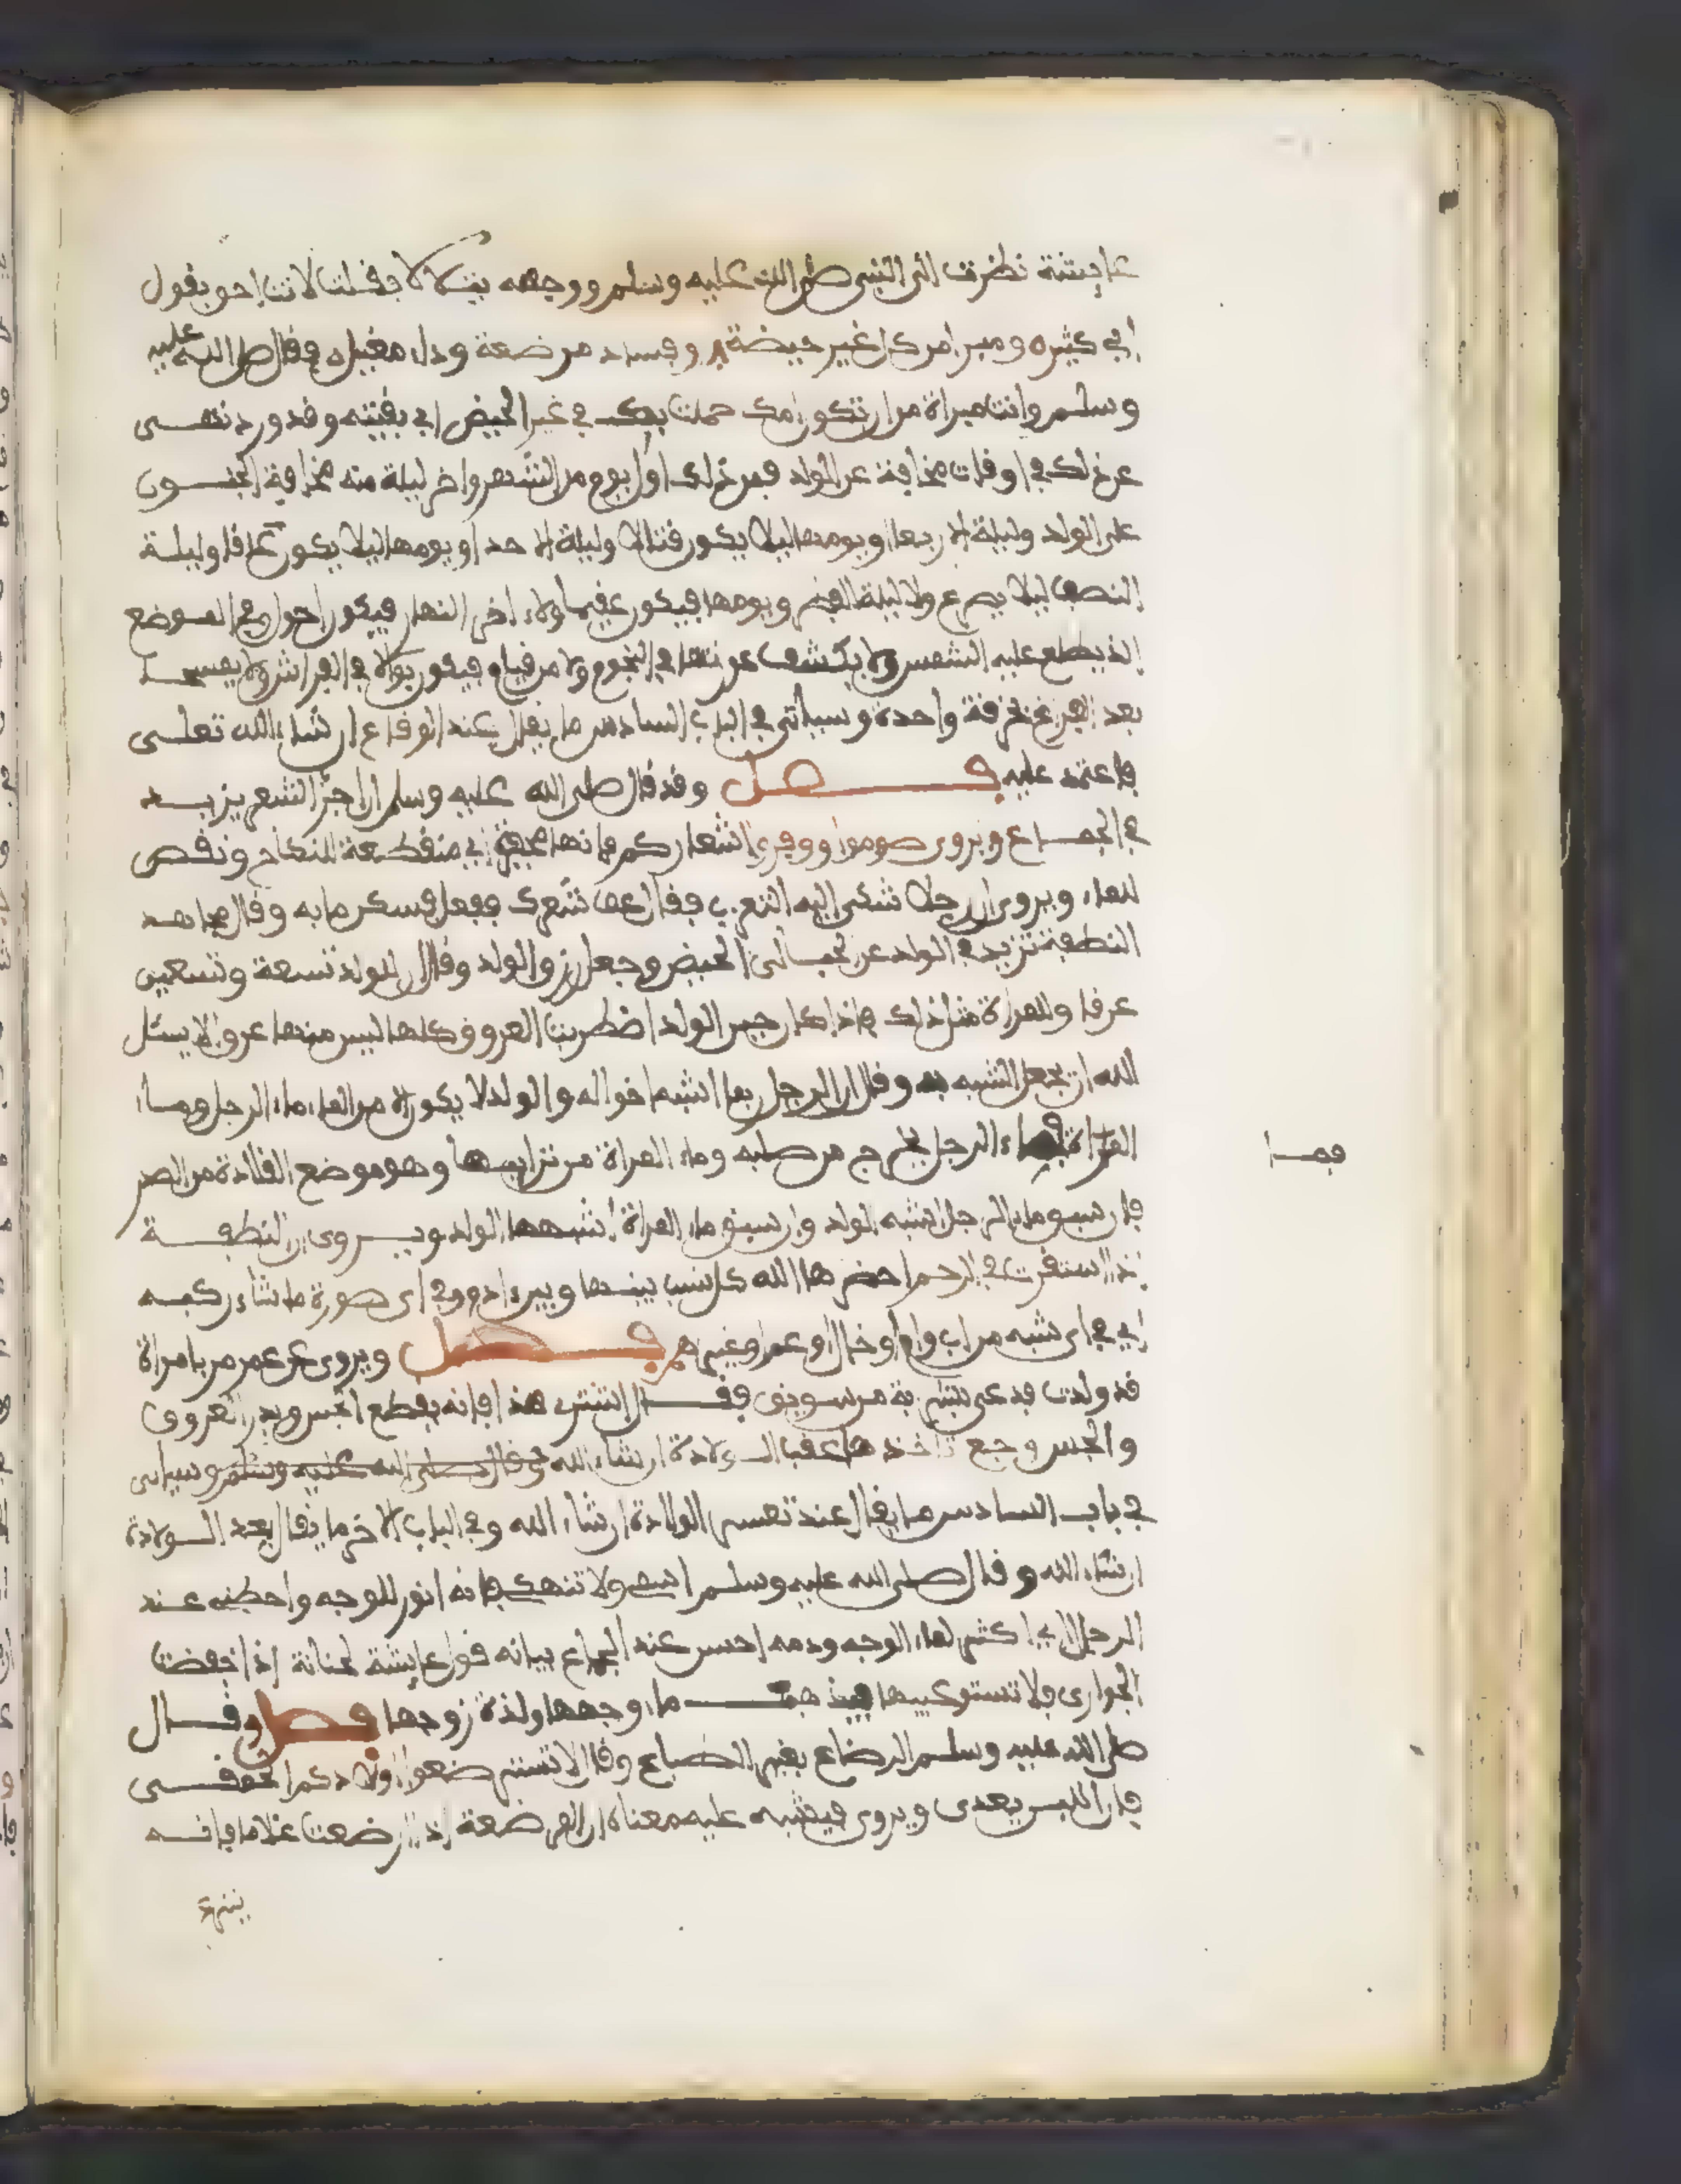 عايشة نظرت الى النبي صلى الله عليه وسلم ووجهه يتلالا فقلت لانت احق بقول
ابي كثير ومبرا من كل غير حيضة وفساد مرضعة وداء مغيل فقال صلى الله عليه
وسلم وانت مبراة من ان تكون امك حملت بك في غير الحيض اي بقيته وقد ورد نهى
عن ذلك في اوقات مخافة على الولد فمن ذلك اول يوم من الشهر واخر ليلة منه مخافة الجنون
على الولد وليلة الاربعا او يومها ليلا يكون قتالا وليلة الاحد او يومها ليلا يكون وليلة
النصف ليلا يصرع ولا ليلة الفطر ويومها فيكون عقيما ولا اخر النهار فيكون احول وفي الموضع
الذي يطلع عليه الشمس ولا يكشف عورتها في النجوم ولا من قيام فيكون بوالا في الفراش ولا يمسحا
بعد الفراغ بخرقة واحدة وسياتي في الباب السادس ما يقال عند الوقاع ان شاء الله تعلى
فاعتمد عليه فصل وقد قال صلى الله عليه وسلم ان جز الشعر يزيد
في الجماع ويروى صوموا ووفروا اشعاركم فانها مجفرة اي منقطعة للنكاح ونقص
للماء ويروى ان رجلا شكى اليه التعزب فقال عف شعرك ففعل فسكن ما به وقال مجاهد
النطفة تزيد في الولد عن الحيض وجعل رزق الولد وقال ان للولد تسعة وتسعين
عرقا وللمراة مثل ذلك فاذا كان حين الولد اضطربت العروق كلها ليس منها عرق الا يسئل
الله ان يجعل الشبه به وقال ان الرجل ربما اشبه اخواله والولد لا يكون الا من الماء ماء الرجل وماء
المراة فماء الرجل يخرج من صلبه وماء المراة من ترايبها وهو موضع القلادة من الصدر
فان سبق ماء الرجل اشبه الولد وان سبق ماء المراة اشبهها الولد ويروى ان النطفة
اذا استقرت في الرحم احضرها الله كل نسب بينها وبين ادم وفي اي صورة ما شاء ركبه
اي في اي شبه من اب وام او خال او عم او غيرهم فصل ويروى عن عمر مر بامراة
قد ولدت فدعى بشربة من سويق فقال اشربي هذا فانه يقطع الحس ويدر العروق
والحس وجع تاخذها عقب الولادة ان شاء الله وقال صلى الله عليه وسلم وسياتي
في باب السادس ما يقال عند تعسر الولادة ان شاء الله وفي الباب الاخر ما يقال بعد الولادة
ان شاء الله وقال صلى الله عليه وسلم اشمى ولا تنهكي فانه انور للوجه واحظى عند
الرجل اي اكثر لماء الوجه ودمه احسن عند الجماع بيانه قول عايشة لختانة اذا خفضت
الجوارى فلا تستوعبيها فيذهب ماء وجهها ولذة زوجها فصل وقال
صلى الله عليه وسلم الرضاع يغير الطباع وقال لا تسترضعوا اولادكم الحمقى
فان اللبن يعدى ويروى فيشبه عليه معناه ان المرضعة اذا ارضعت غلاما فانه
فماء